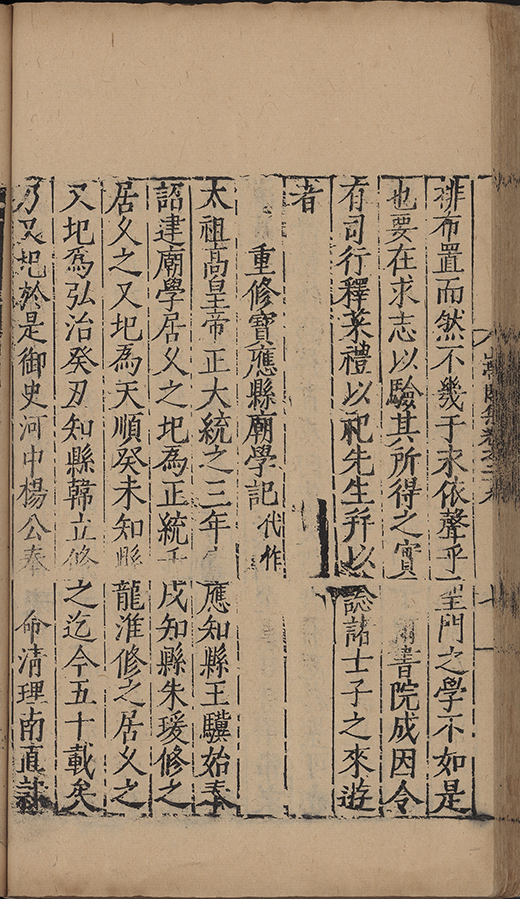 排布置而然不幾于永依聲乎聖門之學不如是
也要在求志以驗其所得之實書院成因令
有司行釋菜禮以祀先生幷以諗諸士子之來遊
者
重修寶應縣廟學記代作
太祖高皇帝正大統之三年應知縣王驥始奉
詔建廟學居久之圮為正統戊知縣朱瑗修之
居久之又圮為天順癸未知縣龍淮修之居久之
又圮為弘治癸丑知縣韓立修之迄今五十載矣
乃又圮於是御史河中楊公奉命清理南直隸